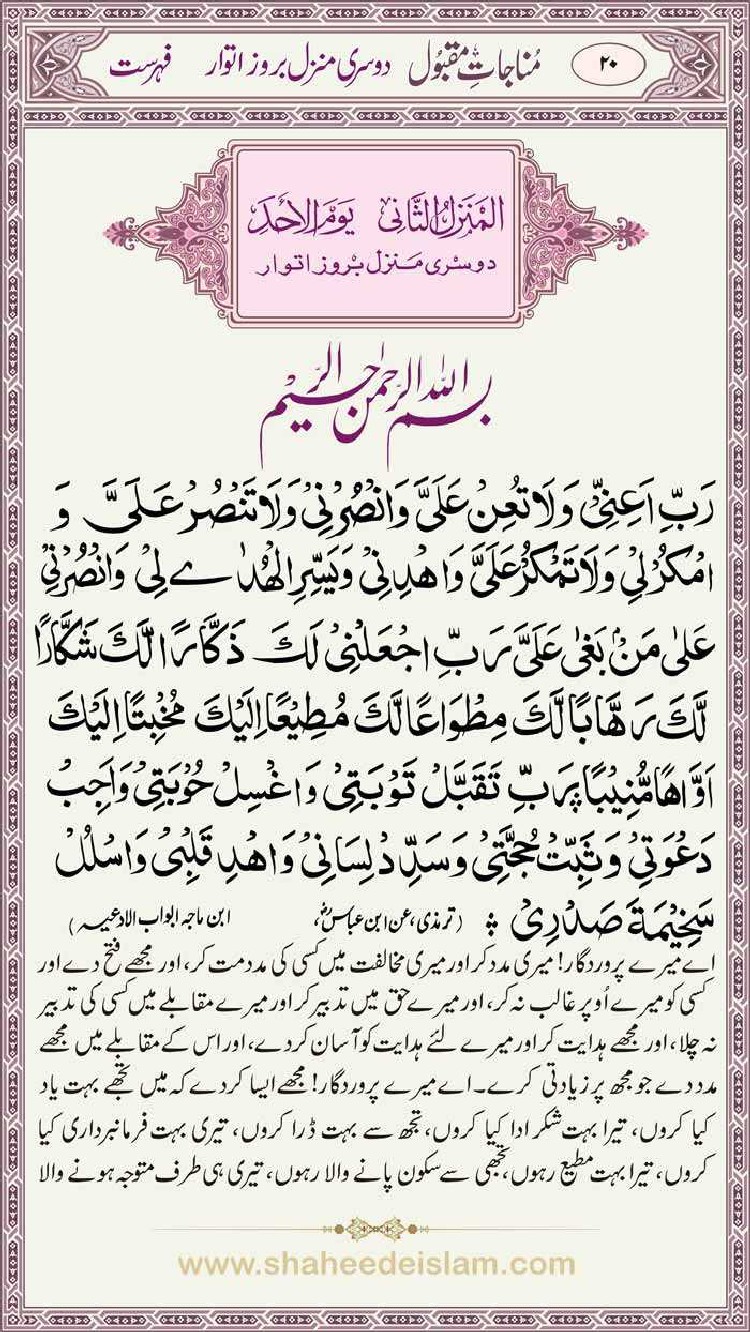 ۲۰ مُناجاتِ مقبُول دوسری منزل بروز اتوار فہرست
اَلْمَنْزِلُ الثَّانِی یَوْمَ الْاَحَدِ
دوسری منزل بروز اتوار
بسم اللہ الرحمٰن الرحیم
رَبِّ اَعِنِّیْ وَلَا تُعِنْ عَلَیَّ وَانْصُرْنِیْ وَلَا تَنْصُرْ عَلَیَّ وَ
امْكُرْ لِیْ وَلَا تَمْكُرْ عَلَیَّ وَاهْدِنِیْ وَیَسِّرِ الْهُدٰی لِیْ وَانْصُرْنِیْ
عَلٰی مَنْۢ بَغٰی عَلَیَّ رَبِّ اجْعَلْنِیْ لَكَ ذَكَّارًا لَّكَ شَكَّارًا
لَّكَ رَهَّابًا لَّكَ مِطْوَاعًا لَّكَ مُطِیْعًا اِلَیْكَ مُخْبِتًا اِلَیْكَ
اَوَّاهًا مُّنِیْبًا رَبِّ تَقَبَّلْ تَوْبَتِیْ وَاغْسِلْ حَوْبَتِیْ وَاَجِبْ
دَعْوَتِیْ وَثَبِّتْ حُجَّتِیْ وَسَدِّدْ لِسَانِیْ وَاهْدِ قَلْبِیْ وَاسْلُلْ
سَخِیْمَةَ صَدْرِیْ (ترمذی، عن ابن عباسؓ، ابن ماجہ ابواب الادعیہ)
اے میرے پروردگار! میری مدد کر اور میری مخالفت میں کسی کی مدد مت کر، اور مجھے فتح دے اور
کسی کو میرے اُوپر غالب نہ کر، اور میرے حق میں تدبیر کر اور میرے مقابلے میں کسی کی تدبیر
نہ چلا، اور مجھے ہدایت کر اور میرے لئے ہدایت کو آسان کردے، اور اس کے مقابلے میں مجھے
مدد دے جو مجھ پر زیادتی کرے۔ اے میرے پروردگار! مجھے ایسا کردے کہ میں تجھے بہت یاد
کیا کروں، تیرا بہت شکر ادا کیا کروں، تجھ سے بہت ڈرا کروں، تیری بہت فرمانبرداری کیا
کروں، تیرا بہت مطیع رہوں، تجھی سے سکون پانے والا رہوں، تیری ہی طرف متوجہ ہونے والا
www.shaheedeislam.com